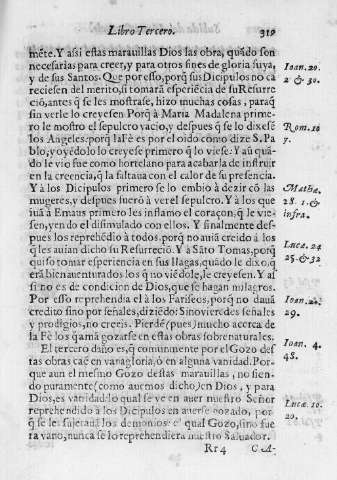 Libro Tercero. 319
mẽte. Y assi estas marauillas Dios las obra, quãdo son
necesarias para creer, y para otros fines de gloria suya,
y de sus Santos. Que por esso, porq̃ sus Dicipulos no ca
reciesen del merito, si tomarã esperiẽcia de su Resurre
ciõ, antes q̃ se les mostrase, hizo muchas cosas, paraq̃
sin verle lo creyesen Porq̃ à Maria Madalena prime-
ro le mostro el sepulcro vacio, y despues q̃ se lo dixesẽ
los Angeles. porq̃ la Fè es por el oido como dize S. Pa
blo, y oyẽdolo lo creyese primero q̃ lo viese: Y aũ quã-
do le vio fue como hortelano para acabarla de instruir
en la creencia, q̃ la faltaua con el calor de su presencia.
Y à los Dicipulos primero se lo embio à dezir cõ las
mugeres, y despues fuerõ à ver el sepulcro. Y à los que
iuã à Emaus primero les inflamo el coraçon, q̃ le vie-
sen, yendo el disimulado con ellos. Y finalmente des-
pues los reprehẽdio à todos, porq̃ no auiã creido à los
q̃ les auian dicho su Resurreciõ. Y à Sãto Tomas, porq̃
quiso tomar esperiencia en sus llagas, quãdo le dixo, q̃
erã bienauenturados los q̃ no viẽdole, le creyesen. Y as
si no es de condicion de Dios, que se hagan milagros.
Por esso reprehendia el à los Fariseos, porq̃ no dauã
credito sino por señales, diziẽdo: Sino vieredes señales
y prodigios, no creeis. Pierdẽ (pues) mucho acerca de
la Fè los q̃ amã gozarse en estas obras sobrenaturales.
El tercero daño es, q̃ comunmente por el Gozo des
tas obras caẽ en vanagloria, ò en alguna vanidad. Por-
que aun el mesmo Gozo destas marauillas, no sien-
do puramente (como auemos dicho) en Dios, y para
Dios, es vanidad: lo qual se ve en auer nuestro Señor
reprehendido à los Dicipulos en auerse gozado, por
q̃ se les sujetauã los demonios: el qual Gozo, sino fue
ra vano, nunca se lo reprehendiera nuestro Saluador.
Rr 4 C A-
Ioan. 20.
2 & 30.
Rom. 10
7.
Mathæ.
28. 1. &
infra.
Lucæ. 24
25. & 32
29.
Ioan. 4.
48.
Lucæ. 10.
20.